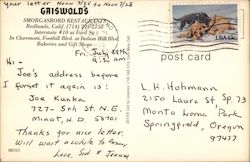 your letter Noon 7/25 to Noon 7/28
GRISWOLD'S
SMORGASBORD RESTAURANTS
Redlands, Calif. (714)
Interstate #10 at Ford St.
In Claremont, Foothill Blvd. at Indian Hill Blvd.
Bakeries and Gift Shops
Fri, July 28th
9:30 am
Hi -
Joe's address before I
forget it again is:
Joe Kunka
727 - 5th St. N.E.
Minot, N.D. 58701
Thanks for nice letter.
Will wait awhile to
Love, Sod & Jenny
USA 15c
L. H. Hohmann
2150 Laura St. Sp. 73
Monta Loma Park
Springfield, Oregon
97477